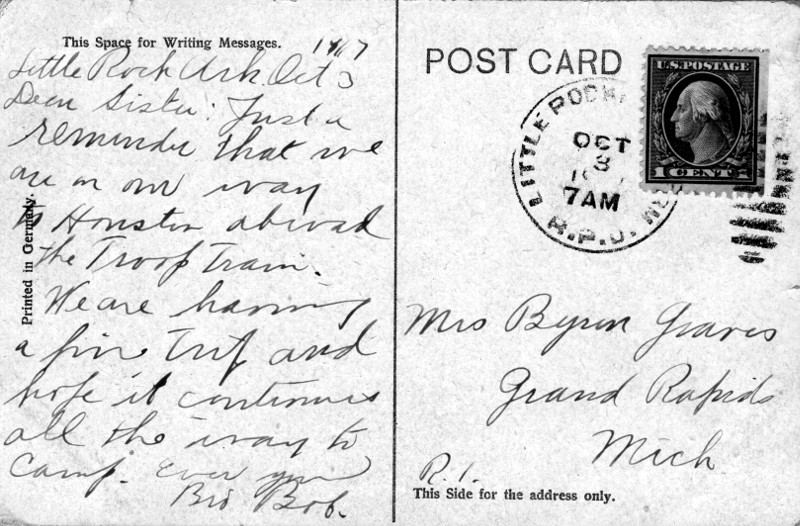 This Space for Writing Messages.
1917
Little Rock Ark. Oct 3
Dear Sister: Just a
reminder that we
are on our way
to Houston aboard
the Troop Train.
We are having
a fine Trip and
hope it continues
all the way to
Camp. Ever your
Bro Bob.
Printed in Germany.
POST CARD
U.S. POSTAGE
1 CENT
LITTLE ROCK
OCT
3
7AM
R.P.O.
Mrs Byron Graves
Grand Rapids
Mich
R. 1.
This Side for the address only.